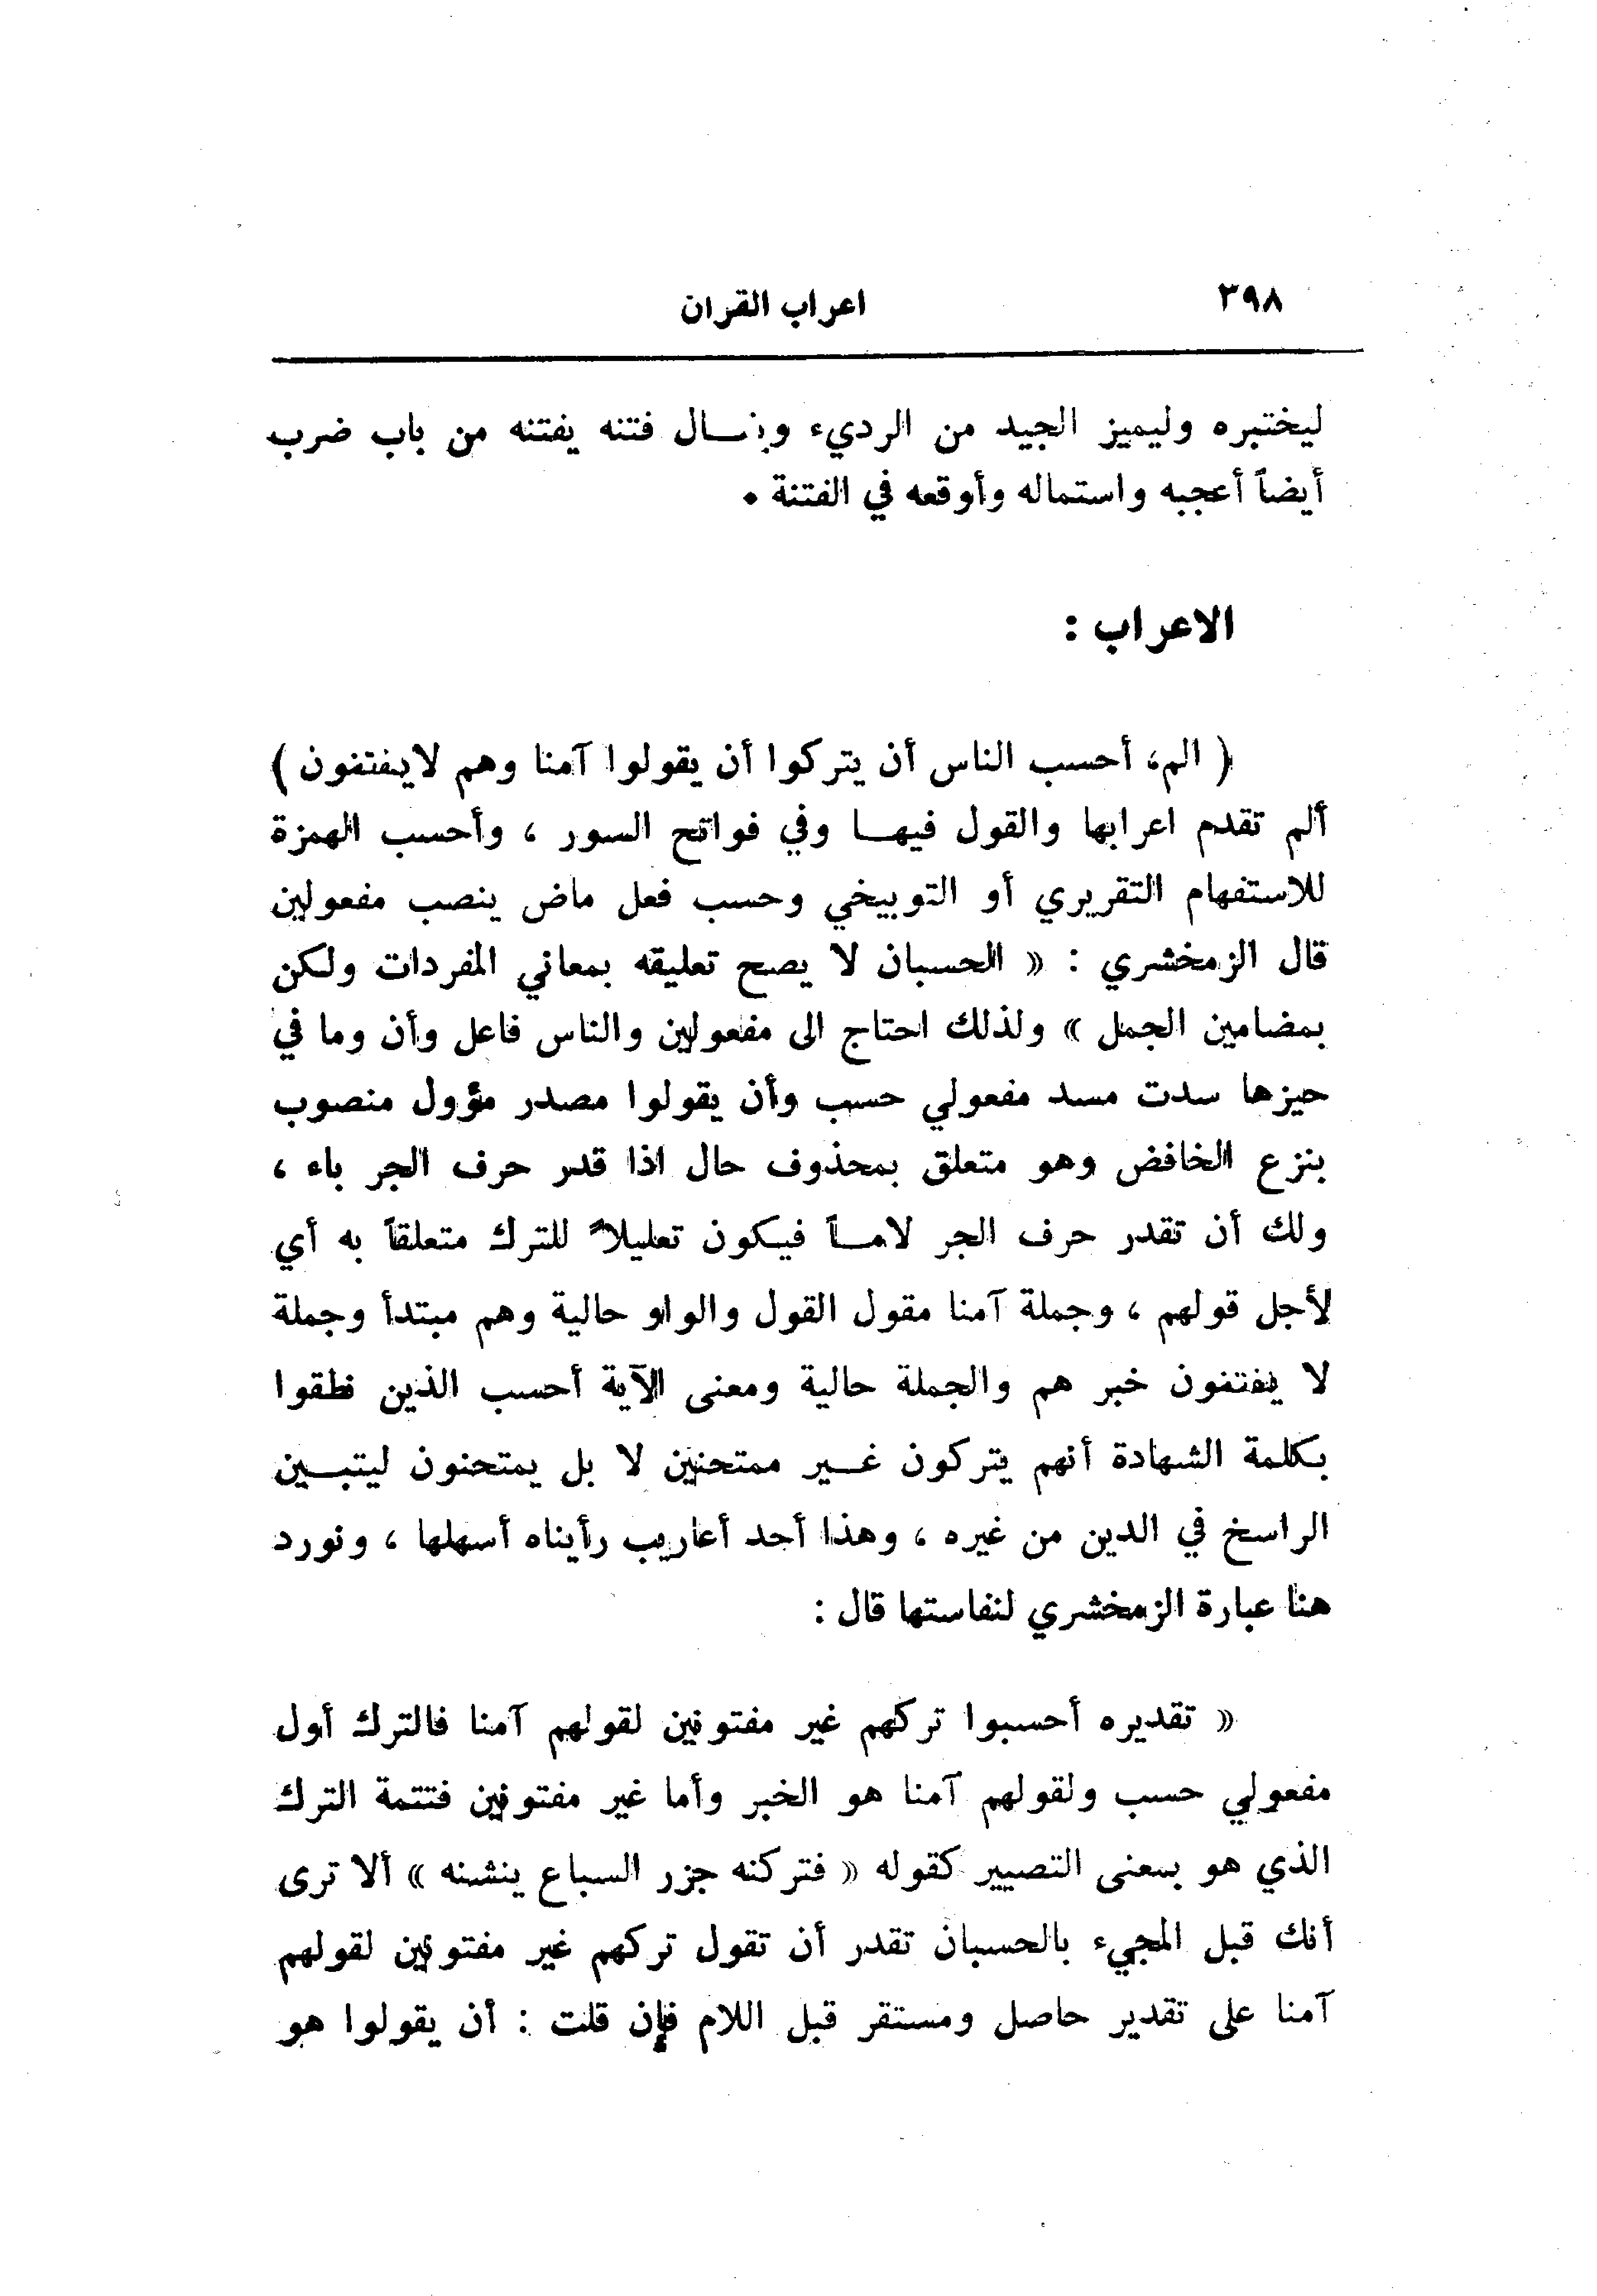 ٣٩٨
اعراب القران
ليختبره وليميز الجيد من الرديء ويقـــال فتنه يفتنه من باب ضرب
أيضاً أعجبه واستماله وأوقعه في الفتنة .
الاعراب :
( الم، أحسب الناس أن يتركوا أن يقولوا آمنا وهم لايفتنون )
ألم تقدم اعرابها والقول فيهـــا وفي فواتح السور ، وأحسب الهمزة
للاستفهام التقريري أو التوبيخي وحسب فعل ماض ينصب مفعولين
قال الزمخشري : « الحسبان لا يصح تعليقه بمعاني المفردات ولكن
بمضامين الجمل » ولذلك احتاج الى مفعولين والناس فاعل وأن وما في
حيزها سدت مسد مفعولي حسب وأن يقولوا مصدر مؤول منصوب
بنزع الخافض وهو متعلق بمحذوف حال اذا قدر حرف الجر باء ،
ولك أن تقدر حرف الجر لامـــاً فيكون تعليلاً للترك متعلقاً به أي
لأجل قولهم ، وجملة آمنا مقول القول والواو حالية وهم مبتدأ وجملة
لا يفتنون خبر هم والجملة حالية ومعنى الآية أحسب الذين نطقوا
بكلمة الشهادة أنهم يتركون غـــير ممتحنين لا بل يمتحنون ليتبـــين
الراسخ في الدين من غيره ، وهذا أحد أعاريب رأيناه أسهلها ، ونورد
هنا عبارة الزمخشري لنفاستها قال :
« تقديره أحسبوا تركهم غير مفتونين لقولهم آمنا فالترك أول
مفعولي حسب ولقولهم آمنا هو الخبر وأما غير مفتونين فتتمة الترك
الذي هو بمعنى التصيير كقوله « فتركنه جزر السباع ينشنه » ألا ترى
أنك قبل المجيء بالحسبان تقدر أن تقول تركهم غير مفتونين لقولهم
آمنا على تقدير حاصل ومستقر قبل اللام فإن قلت : أن يقولوا هو